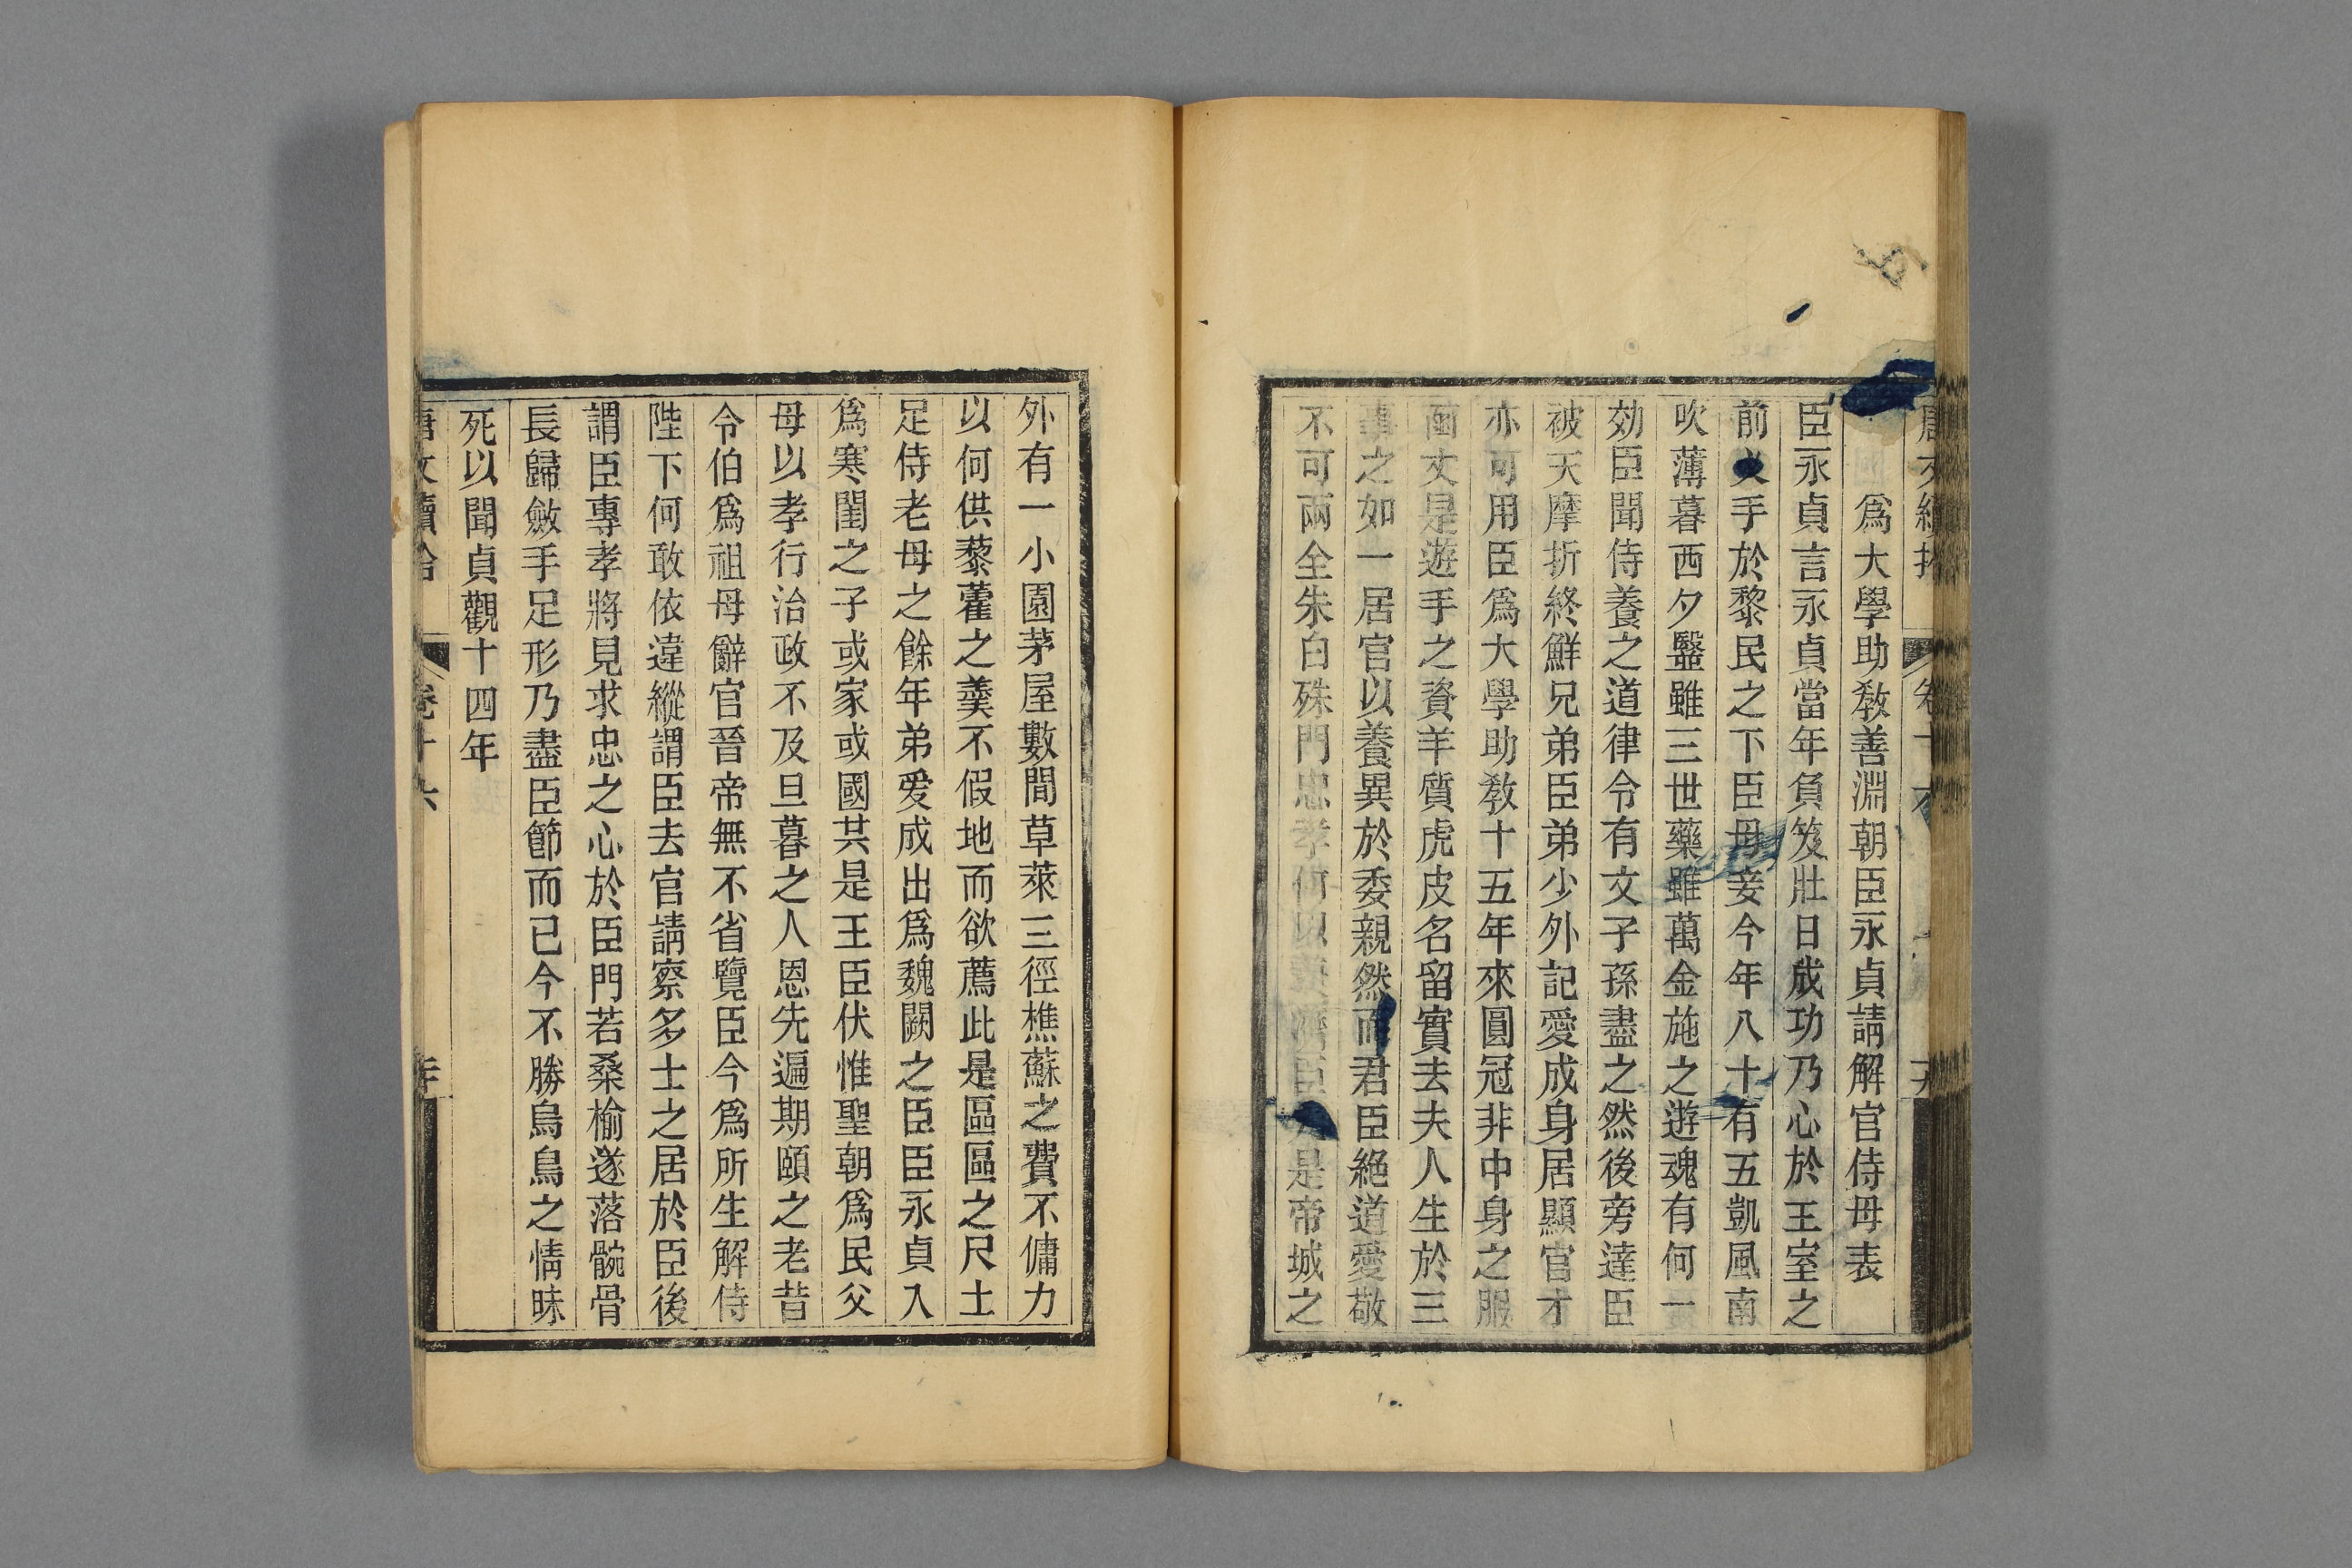 爲大學助敎善淵朝臣永貞請解官侍母表
臣永貞言永貞當年負笈壯日成功乃心於王室之
前 手於黎民之下臣母妾今年八十有五凱風南
吹薄暮西夕毉雖三世藥雖萬金施之遊魂有何一
効臣聞侍養之道律令有文子孫盡之然後旁達臣
被天摩折終鮮兄弟臣弟少外記愛成身居顯官才
亦可用臣爲大學助敎十五年來圓冠非中身之服
凾丈是遊手之資羊質虎皮名留實去夫人生於三
事之如一居官以養異於委親然而君臣絶道愛敬
不可兩全朱白殊門忠孝何以 濟臣 是帝城之
外有一小園茅屋數間草萊三徑樵蘇之費不傭力
以何供藜藿之羹不假地而欲薦此是區區之尺土
足侍老母之餘年弟爰成出爲魏闕之臣臣永貞入
爲寒閨之子或家或國共是王臣伏惟聖朝爲民父
母以孝行治政不及旦暮之人恩先遍期頤之老昔
令伯爲祖母辭官晉帝無不省覽臣今爲所生解侍
陛下何敢依違縱謂臣去官請察多士之居於臣後
謂臣專孝將見求忠之心於臣門若桑榆遂落骸骨
長歸斂手足形乃盡臣節而已今不勝烏鳥之情昧
死以聞貞觀十四年